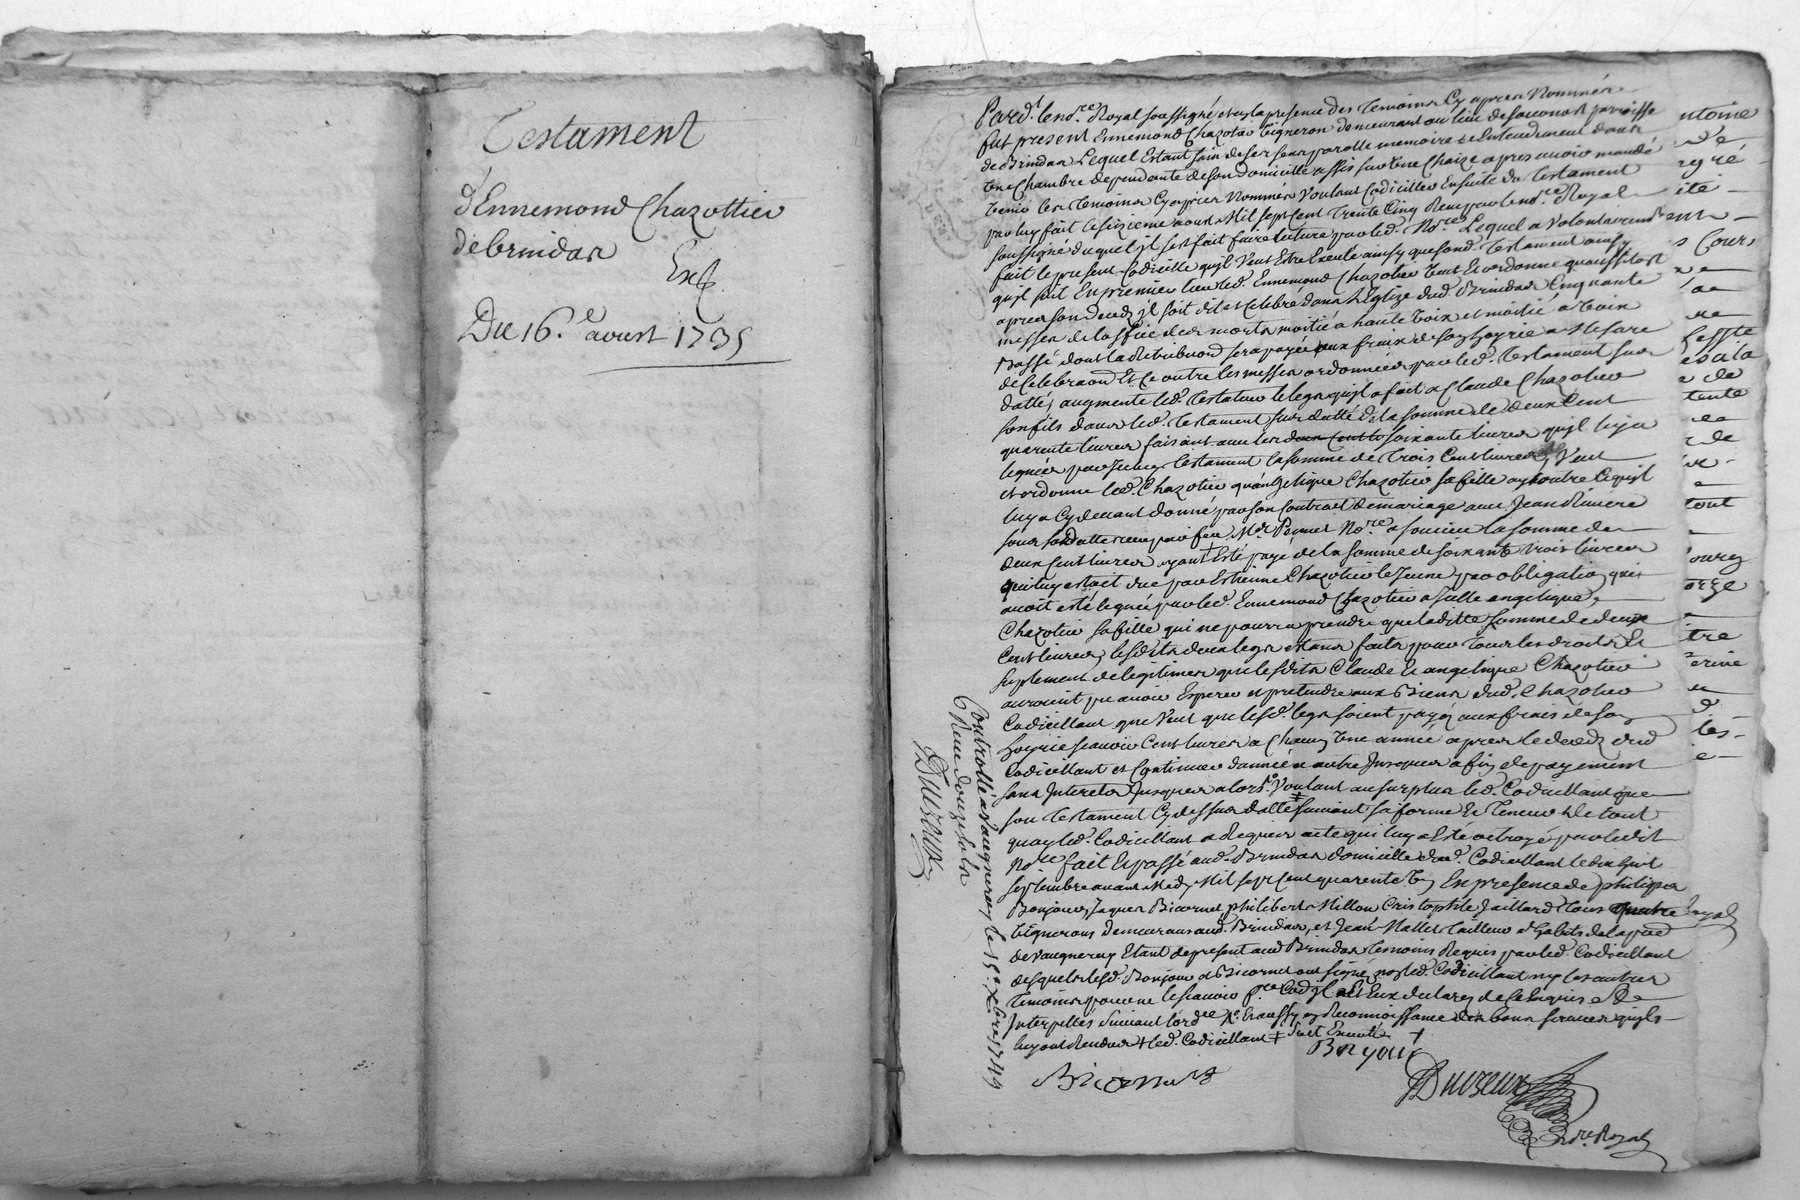 Testament
d'Ennemond Chazottier
de brindas
Exp.
Du 16.e aoust 1735
Pard.t le no.re Royal soussigné et en la presence des Temoins Cy apres Nommés
fut present Ennemond Chazotier Vigneron demeurant au lieu de paroisse
de Brindas Lequel Estant sain de ses sens parolle memoire et Entendement dans
Une Chambre dependante de son domicille assis sur Une Chaize apres avoir mandé
Venir les Temoins Cy apres Nommés Voulant Codiciller Ensuite du Testament
par luy fait le seizieme aoust Mil sept Cent Trente Cinq Receu par led. no.re Royal
soussigné duquel il s'est fait faire lecture par led. No.re Lequel a Volontairement
fait le present Codicille qu'il Veut Estre Executé ainsy que sond. Testament ainsy
qu'il suit En premier lieu led. Ennemond Chazotier Veut Et ordonne qu'aussitost
apres son deceds il soit dit et Celebré dans l'Eglize dud. Brindas Cinquante
messes de l'office des morts moitié a haute Voix et moitié a Voix
Bassé dont la retribution sera payée aux fraix de son hoyrie a Mesure
de Celebraon Et Ce outre les messes ordonnées par led. Testament sus
datté, augmente led. Testateur le legs qu'il a fait a Claude Chazotier
son fils dans led. Testament sus datté de la somme de deux Cent
quarente livres faisant avec les soixante livres qu'il luy a
leguées par Testament la somme de Trois Cent livres, Veut
et ordonne led. Chazotier qu'angelique Chazotier sa fille aye outre Ce qu'il
luy a Cy devant donné par son Contract de mariage avec Jean Riviere
sous sa datte receu par feu M.e Pernet No.re a soucieu la somme de
deux Cent livres ayant Esté payé de la somme de soixante trois livres
qui luy estoit due par Estienne Chazotier le Jeune par obligation qui
avoit esté leguée par led. Ennemond Chazotier a jcelle angelique
Chazotier sa fille qui ne pourra prendre que laditte somme de deux
Cent livres, lesdits deux legs Estans faits pour tous les droits Et
suplement de legitimes que lesdits Claude Et angelique Chazotier
auroient pu avoir Esperer et pretendre aux Biens dud. Chazotier
Codicillant qui Veut que lesd. legs soient payés aux frais de son
hoyrie sçavoir Cent livres a Chacun Une année apres le deceds dud
Codicillant et Continuer d'année a autre Jusques a fin de payement
sans Interets Jusques alors. Voulant au surplus led. Codicillant que
son Testament Cy dessus datté ‡ suivant sa forme Et Teneur De tout
quoy led. Codicillant a Requis acte qui luy a Esté octroyé par ledit
No.re fait Et passé aud. Brindas domicille dud. Codicillant le dix huit
septembre avant Midy Mil sept Cent quarente En presence de philipe
Bonjour, Jaques Bicornet philibert Millon Cristophle Jaillard tous
Vignerons demeurans aud. Brindas, et Jean Mallet Tailleur d'habits de la par.
de Vaugneray Etant de present aud Brindas Temoins Requis par led. Codicillant
desquels lesd. Bonjour et Bicornet ont signé non led. Codicillant ny les autres
Temoins pour ne le sçavoir Eux declares de Ce Enquis Et
Interpellés suivant l'ord.ce Reconnoissance des bons services qu'ils
luy ont Rendus + led. Codicillant ‡ soit Executé
Bonjour
Bicornet
Duvzeux
no.re Royal
Controllé a Vaugneray le 15.e Xbre 1749
Receu douze sols
Duvzeux
ntoine
regré
ité
ent
s Cours
tente
tout
ourez
orze
tre
erine
les